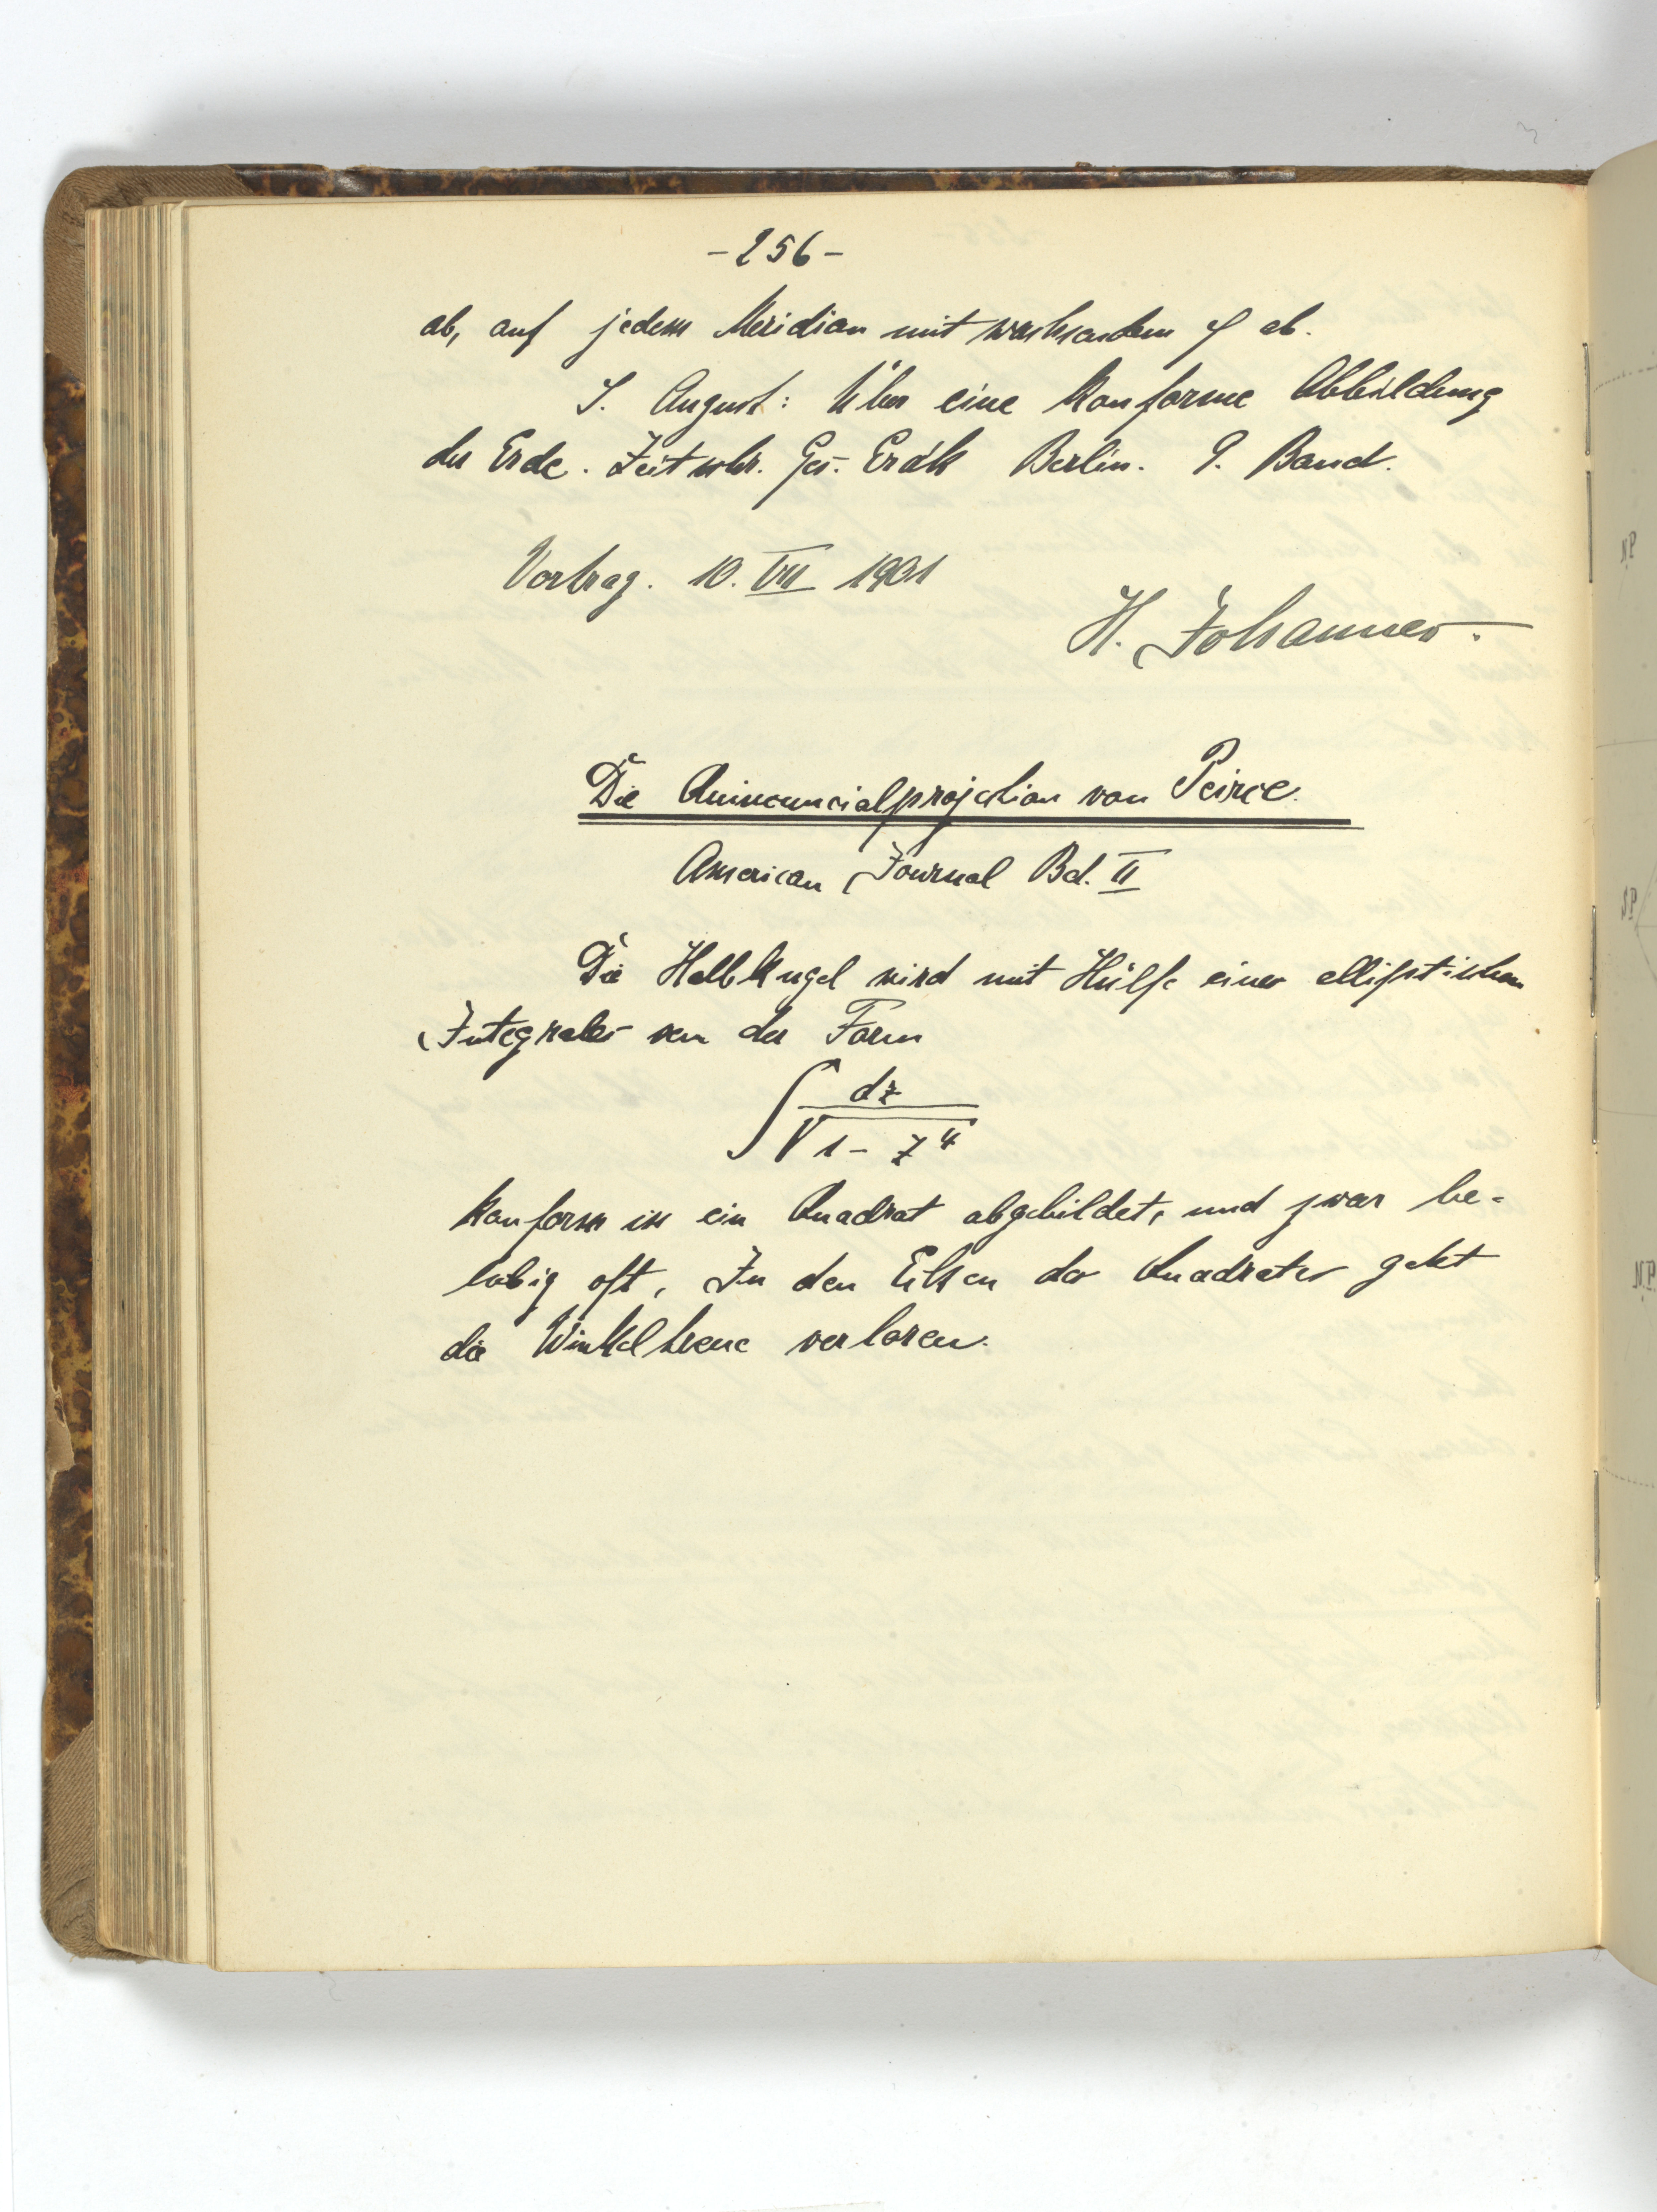 - 256 -
ab, auf jedem Meridian mit wachsendem φ ab.
F. August: Über eine konforme Abbildung
der Erde. Zeitschr. Ges. Erdk Berlin. 9. Band.
Vortrag. 10. VII 1901
H. Johannes.
Die Quincuncialprojektion von Peirce.
American Journal Bd. II
Die Halbkugel wird mit Hülfe eines elliptischen
Integrales von der Form
∫ dz / √1 - z⁴
konform in ein Quadrat abgebildet, und zwar be-
liebig oft. In den Ecken des Quadrates geht
die Winkeltreue verloren.